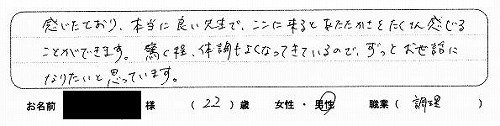 感じたており、本当に良い先生で、ここに来るとあたたかさをたくさん感じる
ことができます。驚く程、体調もよくなってきているので、ずっとお世話に
なりたいと思っています。
お名前 様 （22）歳 女性・男性 職業（調理）